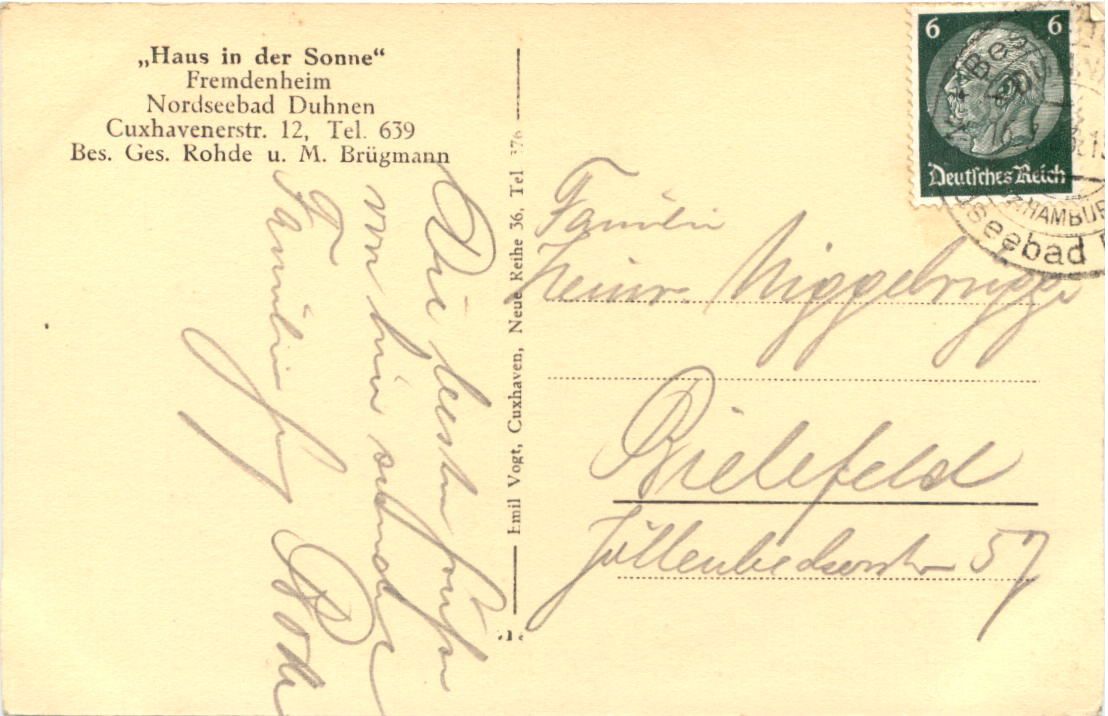 „Haus in der Sonne“
Fremdenheim
Nordseebad Duhnen
Cuxhavenerstr. 12, Tel. 639
Bes. Ges. Rohde u. M. Brügmann
Die besten Grüße
von hier sendet
Familie
Emil Vogt, Cuxhaven, Neue Reihe 36, Tel 376
6 6
Deutsches Reich
HAMBUR
seebad
Familie
Heinr. Niggebrügge
Bielefeld
Jöllenbeckerstr 57